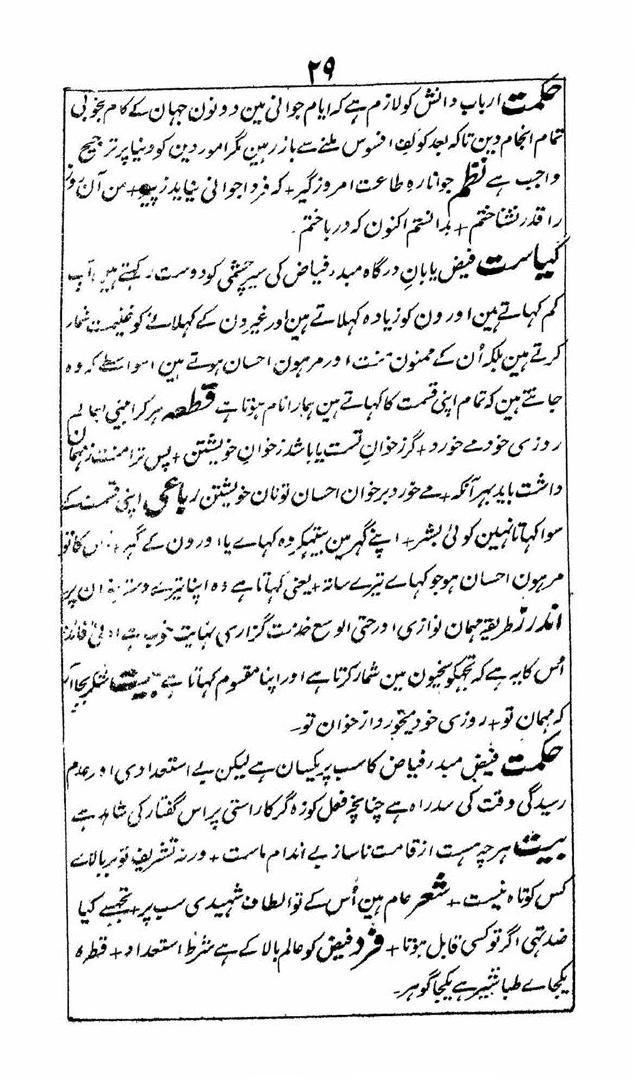 ۲۹
حکمت ارباب دانش کو لازم ہے کہ ایام جوانی مین دونون جہان کے کام بخوبی
تمام انجام دین تاکہ بعد کو کف افسوس ملنے سے باز رہین مگر امور دین کو دنیا پر ترجیح
واجب ہے نظم جوانا رہ طاعت امروز گیر + کہ فردا جوانی نیاید ز پیر + من آن روز
را قدر نشناختم + بدانستم اکنون کہ درباختم ۔
کیاست فیض یابان درگاہ مبدء فیاض کی سیر چشمی کو دوست رکہتے ہین آپ
کم کہاتے ہین اورون کو زیادہ کہلاتے ہین اور غیرون کے کہلانے کو غنیمت شمار
کرتے ہین بلکہ اُن کے ممنون منت اور مرہون احسان ہوتے ہین اسواسطے کہ وہ
جانتے ہین کہ تمام اپنی قسمت کا کہاتے ہین ہمارا نام ہوتا ہے قطعہ ہر کرا بینی بعالم
روزی خود مے خورد + گر ز خوان تست یا باشد ز خوان خویشتن + پس ترا منت ز مہمان
داشت باید بہر آنکہ + مے خورد بر خوان احسان تو نان خویشتن رباعی اپنی قسمت کے
سوا کہاتا نہین کوئی بشر + اپنے گہر مین بیٹہکر وہ کہاے یا اورون کے گہر + اس کا تو
مرہون احسان ہو جو کہاے تیرے ساتہ + یعنی کہاتا ہے وہ اپنا تیرے دسترخوان پر
اندرز طریقہ مہمان نوازی اور حتی الوسع خدمت گزاری نہایت خوب ہے ادنیٰ فائدہ
اُس کا یہ ہے کہ تجہکو سخیون مین شمار کرتا ہے اور اپنا مقسوم کہاتا ہے بیت شکر بجا آر
کہ مہمان تو + روزی خود میخورد از خوان تو ۔
حکمت فیض مبدء فیاض کا سب پر یکسان ہے لیکن بے استعدادی اور عدم
رسیدگی وقت کی سدراہ ہے چنانچہ فعل کوزہ گر کا راستی پر اس گفتار کی شاہد ہے
بیت ہرچہ ہست از قامت ناساز بے اندام ماست + ورنہ تشریف تو بر بالاے
کس کوتاہ نیست + شعر عام ہین اُس کے تو الطاف شہیدی سب پر + تجہسے کیا
ضد تہی اگر تو کسی قابل ہوتا + فرد فیض کو عالم بالا کے ہے شرط استعداد + قطرہ
یکجاے طباشیر ہے یکجا گوہر ۔